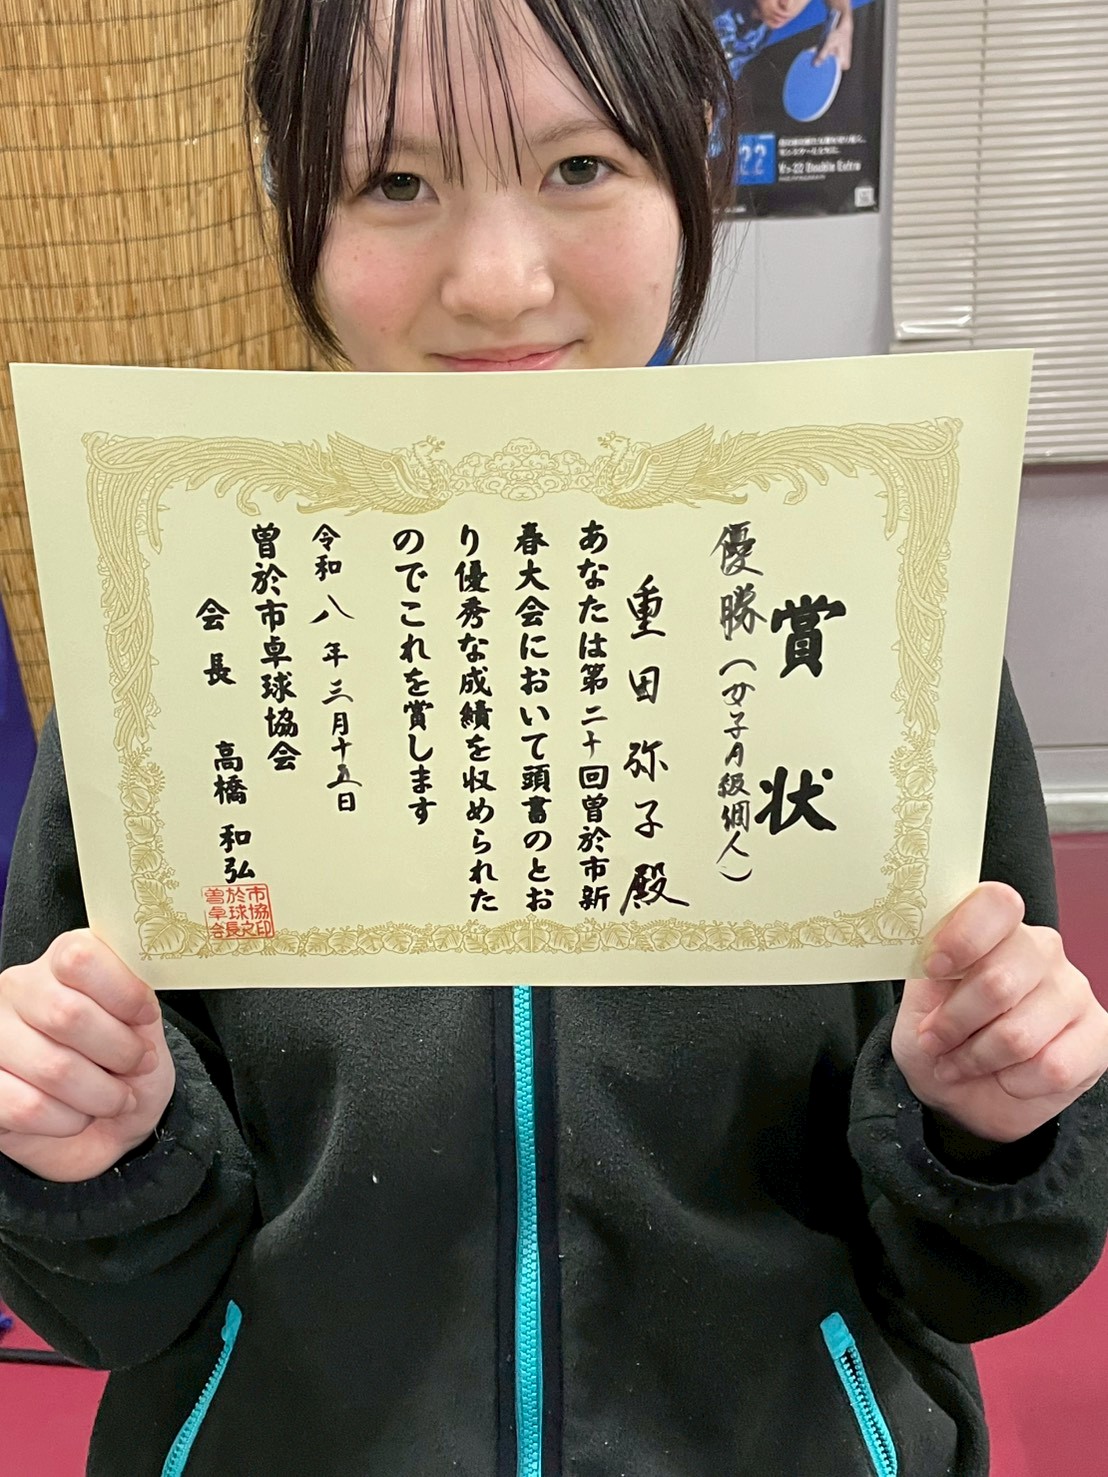 賞状
優勝(女子A級個人)
重田弥子殿
あなたは第二十回曽於市新
春大会において頭書のとお
り優秀な成績を収められた
のでこれを賞します
令和八年三月十五日
曽於市卓球協会
会長 高橋和弘
市協印
於球之
曽卓会長
22
V>22 Double Extra